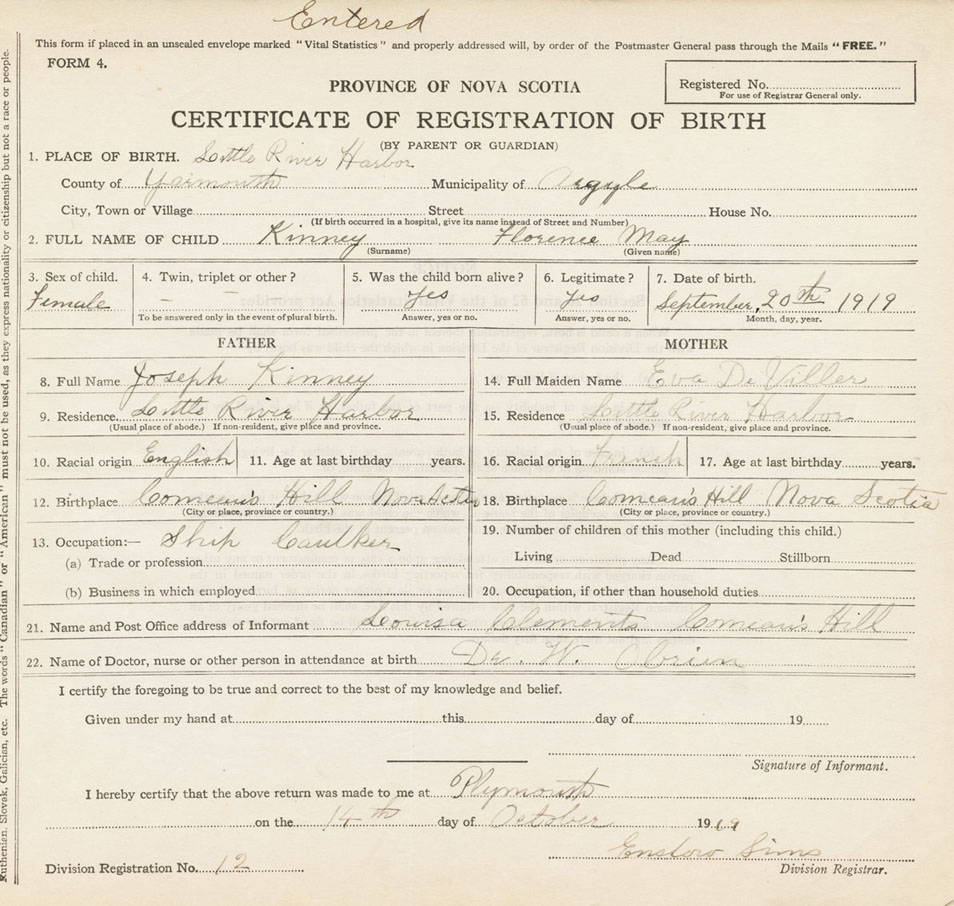 Entered
This form if placed in an unsealed envelope marked "Vital Statistics" and properly addressed will, by order of the Postmaster General pass through the Mails "FREE."
FORM 4.
Registered No.
For use of Registrar General only.
PROVINCE OF NOVA SCOTIA
CERTIFICATE OF REGISTRATION OF BIRTH
(BY PARENT OR GUARDIAN)
1. PLACE OF BIRTH. Little River Harbor
County of Yarmouth Municipality of Argyle
City, Town or Village Street House No.
(If birth occurred in a hospital, give its name instead of Street and Number)
2. FULL NAME OF CHILD Kinney Florence May
(Surname) (Given name)
3. Sex of child. 4. Twin, triplet or other? 5. Was the child born alive? 6. Legitimate? 7. Date of birth.
Female – – Yes Yes September, 20th 1919
To be answered only in the event of plural birth. Answer, yes or no. Answer, yes or no. Month, day, year.
FATHER MOTHER
8. Full Name Joseph Kinney 14. Full Maiden Name Eva DeViller
9. Residence Little River Harbor 15. Residence Little River Harbor
(Usual place of abode.) If non-resident, give place and province. (Usual place of abode.) If non-resident, give place and province.
10. Racial origin English 11. Age at last birthday years. 16. Racial origin French 17. Age at last birthday years.
12. Birthplace Comeau's Hill Nova Scotia 18. Birthplace Comeau's Hill Nova Scotia
(City or place, province or country.) (City or place, province or country.)
19. Number of children of this mother (including this child.)
13. Occupation:— Ship Caulker
Living Dead Stillborn
(a) Trade or profession
(b) Business in which employed 20. Occupation, if other than household duties
21. Name and Post Office address of Informant Louisa Clements Comeau's Hill
22. Name of Doctor, nurse or other person in attendance at birth Dr. W. OBrien
I certify the foregoing to be true and correct to the best of my knowledge and belief.
Given under my hand at this day of 19
Signature of Informant.
I hereby certify that the above return was made to me at Plymouth
on the 14th day of October 1919
Sims
Division Registration No. 12 Division Registrar.
Ruthenian, Slovak, Galician, etc. The words "Canadian" or "American" must not be used, as they express nationality or citizenship but not a race or people.